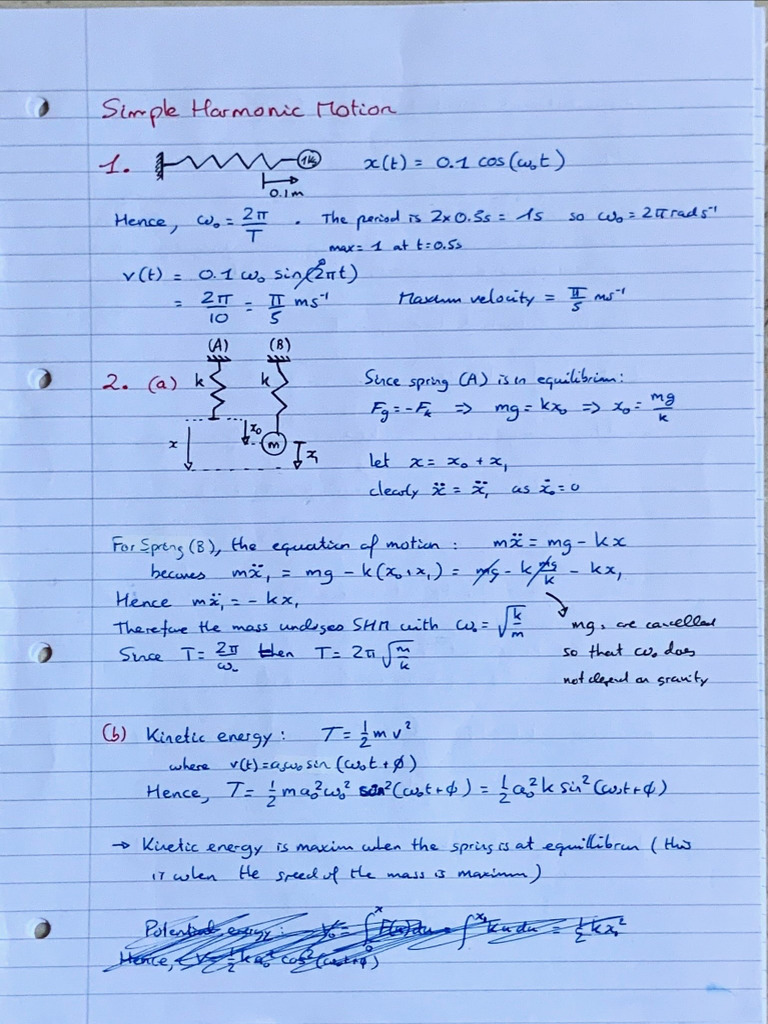 Simple Harmonic Motion
1. 1kg x(t) = 0.1 cos(ω₀t)
0.1m
Hence, ω₀ = 2π/T . The period is 2x0.5s = 1s so ω₀ = 2π rad s⁻¹
max = 1 at t=0.5s
v(t) = 0.1 ω₀ sin(2πt)
= 2π/10 = π/5 ms⁻¹ Maximum velocity = π/5 ms⁻¹
(A) (B)
2. (a) k k Since spring (A) is in equilibrium:
Fg = -Fk ⇒ mg = kx₀ ⇒ x₀ = mg/k
x x₀ m x₁
let x = x₀ + x₁
clearly ẍ = ẍ₁ as ẍ₀ = 0
For Spring (B), the equation of motion : mẍ = mg - kx
becomes mẍ₁ = mg - k(x₀+x₁) = mg - k mg/k - kx₁
Hence mẍ₁ = -kx₁
Therefore the mass undergoes SHM with ω₀ = √(k/m) mgs are cancelled
Since T = 2π/ω₀ then T = 2π√(m/k) so that ω₀ does
not depend on gravity
(b) Kinetic energy : T = ½mv²
where v(t) = a₀ω₀ sin(ω₀t + φ)
Hence, T = ½ma₀²ω₀² sin²(ω₀t+φ) = ½a₀²k sin²(ω₀t+φ)
→ Kinetic energy is maximum when the spring is at equilibrium (this
is when the speed of the mass is maximum)
Potential energy:
Hence, V = ½ka₀² cos²(ω₀t+φ)